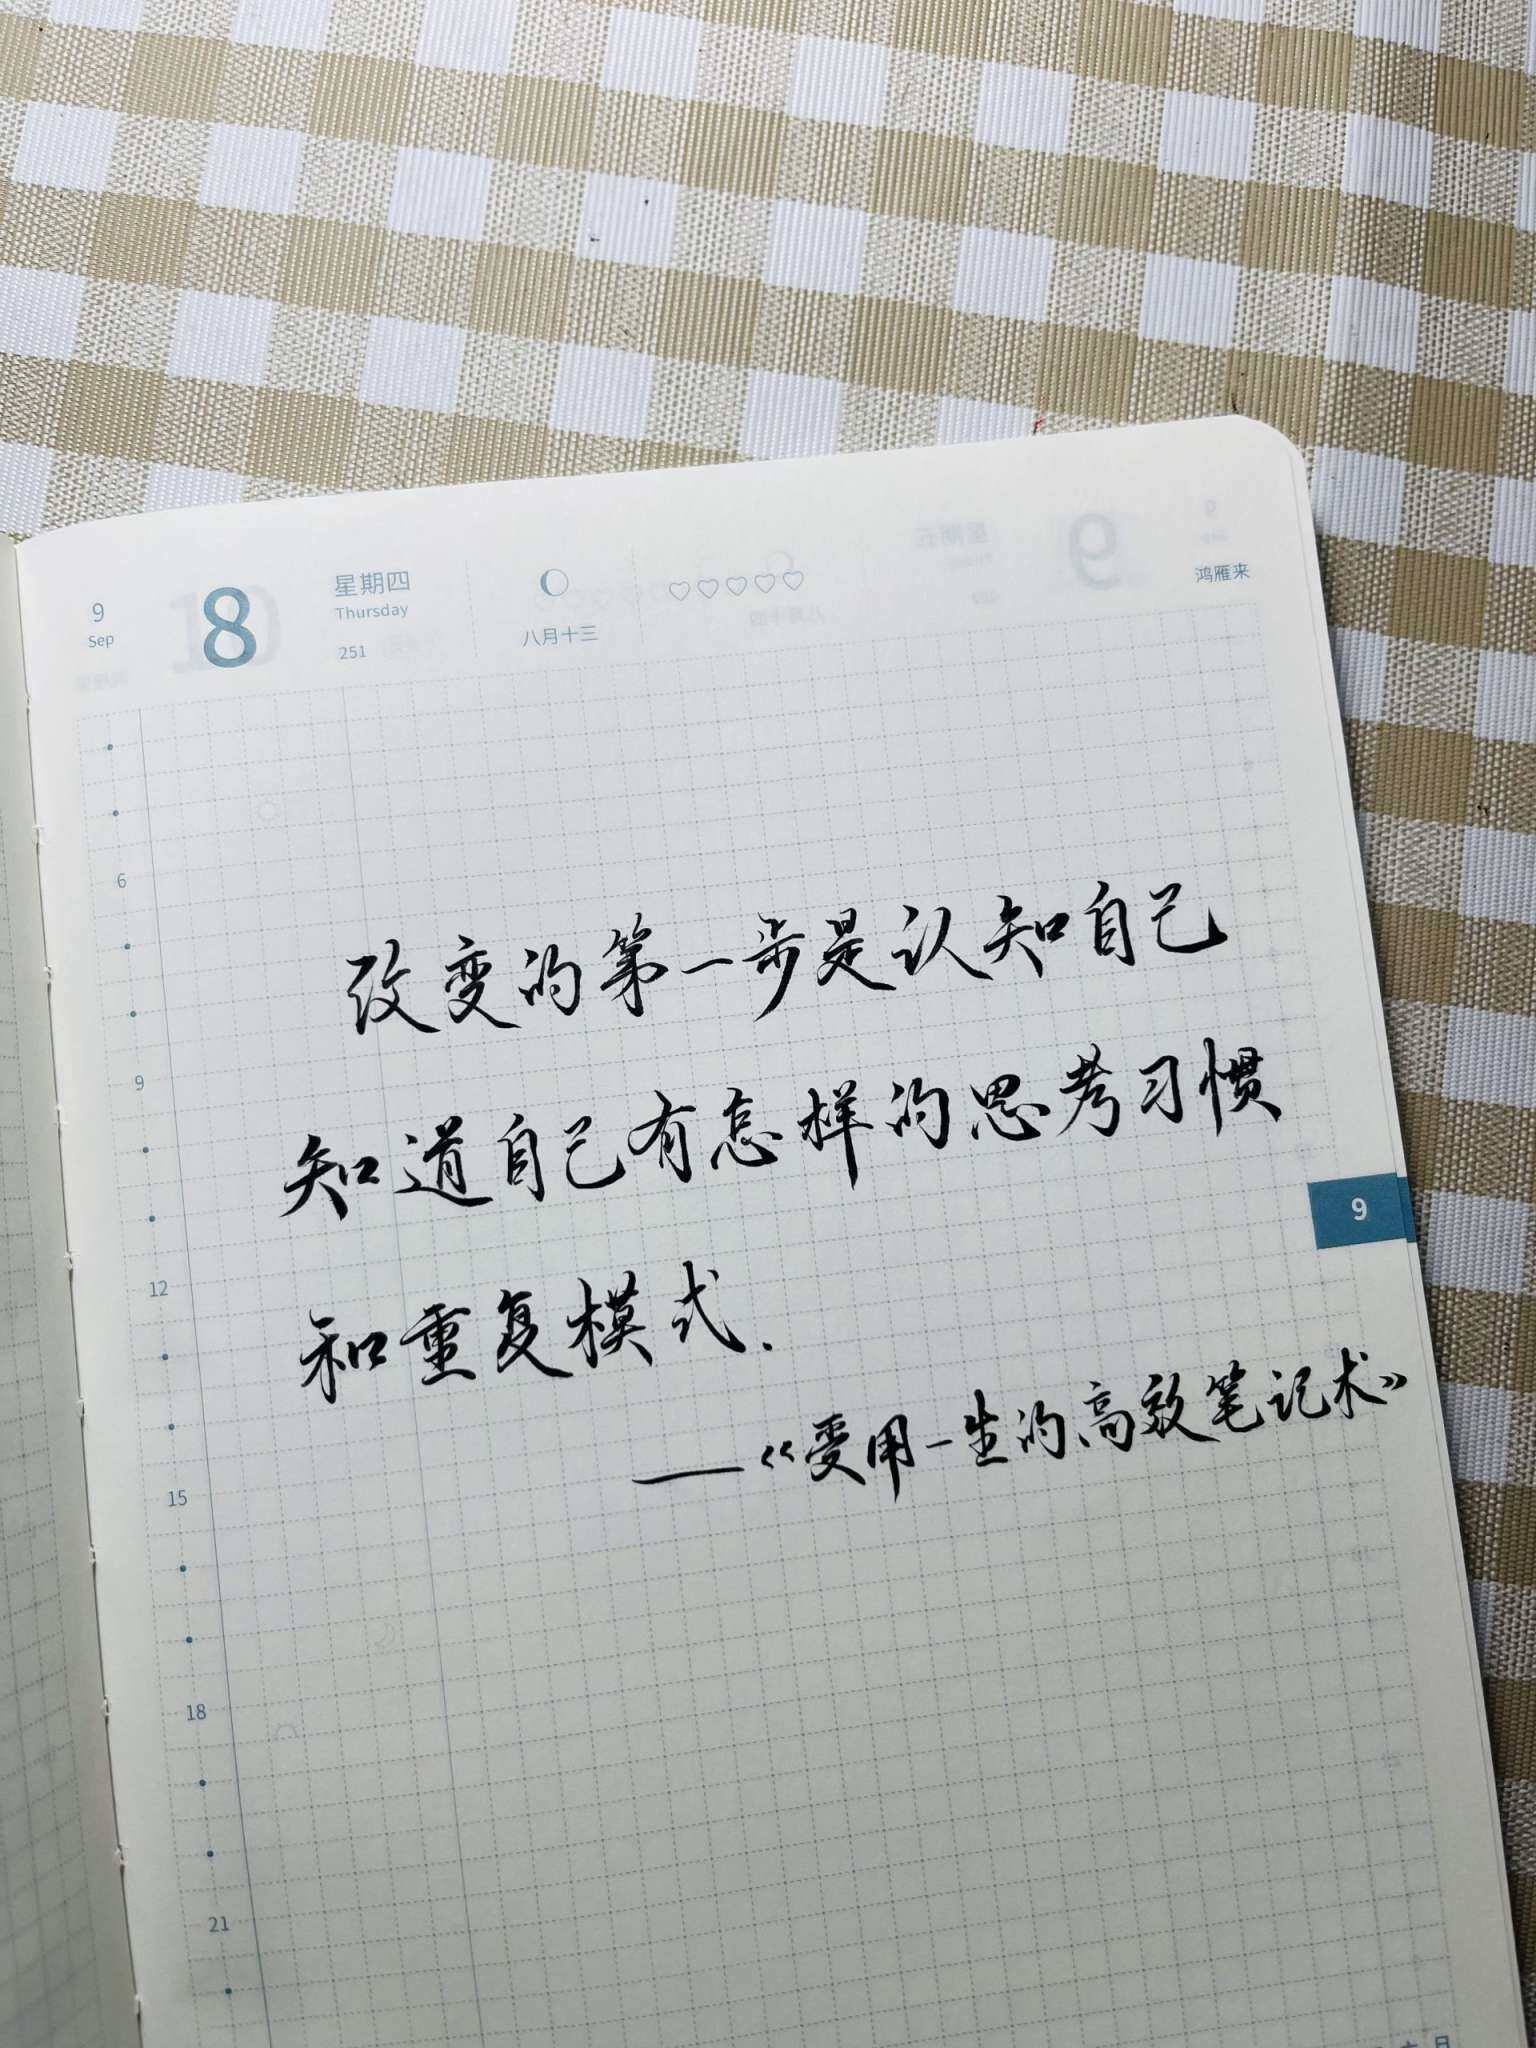 9
Sep
8
星期四
Thursday
251
八月十三
鸿雁来
6
改变的第一步是认知自己
9
知道自己有怎样的思考习惯
9
12
和重复模式.
——《受用一生的高效笔记术》
15
18
21